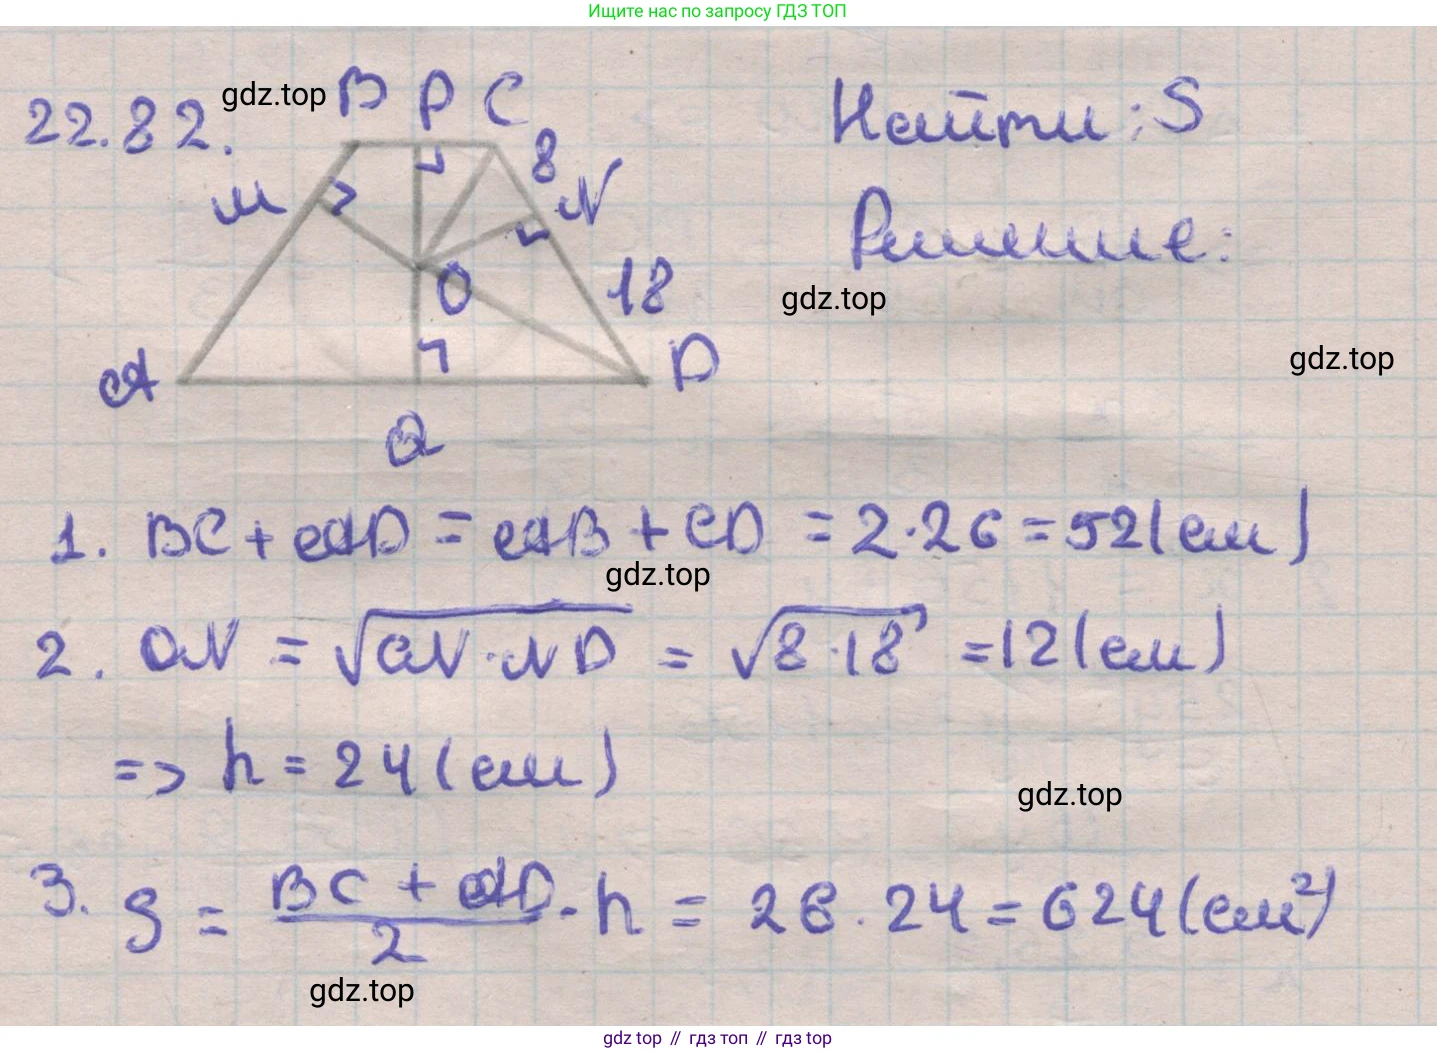 Ищите нас по запросу ГДЗ ТОП
22.82. gdz.top B P C
8
M N
O
18
A D
Q
Найти: S
Решение:
gdz.top
gdz.top
1. BC + AD = AB + CD = 2·26 = 52 (см)
gdz.top
2. ON = √CN·ND = √8·18 = 12 (см)
=> h = 24 (см)
gdz.top
3. S = BC + AD / 2 · h = 26·24 = 624 (см²)
gdz.top
gdz top // гдз топ // гдз top